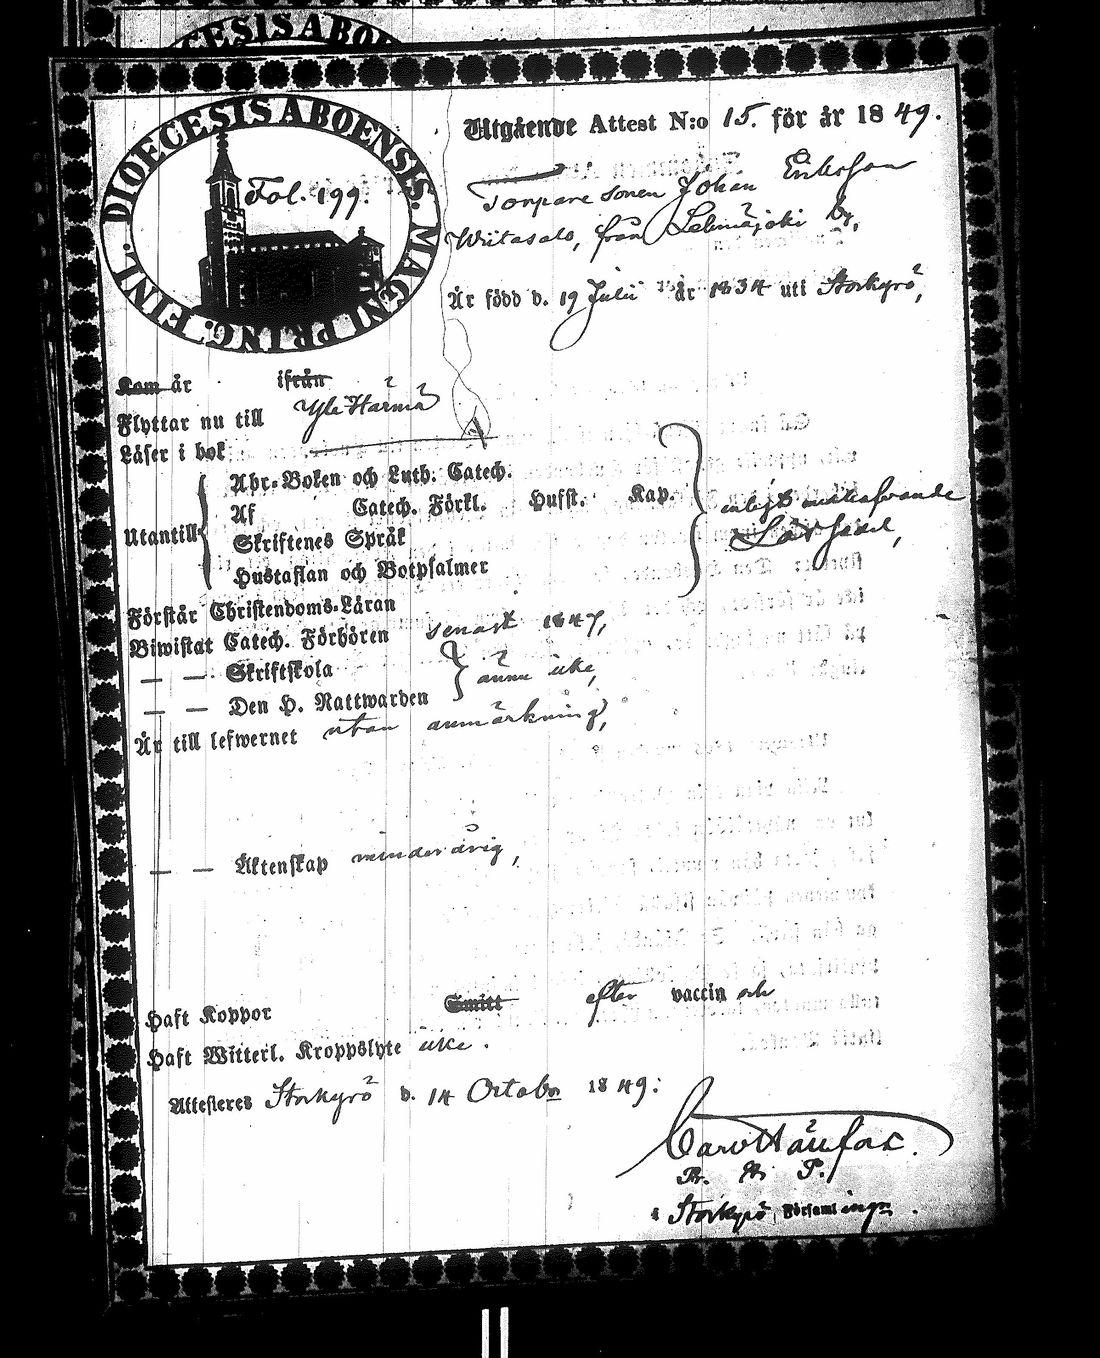 DIOECESIS ABOENSIS. MAGNI PRINC. FINL.
Fol. 199.
Utgående Attest N:o 15. för år 1849.
Torpare sonen Johan Eriksson
Wiitasalo, från Lehmäjoki by,
Är född d. 19 Julii år 1834 uti Storkyrö,
Kom år ifrån
Flyttar nu till Ylihärmä
Läser i bok
Utantill
Abc-Boken och Luth. Catech.
Af Catech. Förkl. Hufst. Kap.
Skriftenes Språk
Hustaflan och Botpsalmer
enligt medföljande
Läs sedel,
Förstår Christendoms-Läran
Biwistat Catech. Förhören senast 1847,
— — Skriftskola
— — Den H. Nattwarden
ännu icke,
Är till lefwernet utan anmärkning,
— — Äktenskap minderårig,
Haft Koppor Smitt efter vaccin och
Haft Witterl. Kroppslyte icke.
Attesteras Storkyrö d. 14 October 1849:
Carl
P.
i Storkyrö Församling.